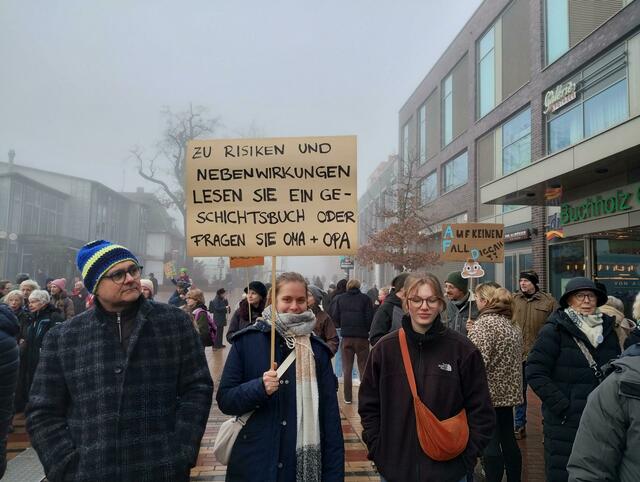 ZU RISIKEN UND
NEBENWIRKUNGEN
LESEN SIE EIN GE-
SCHICHTSBUCH ODER
FRAGEN SIE OMA + OPA
AUF KEINEN
FALL
Galerie
Buchholz